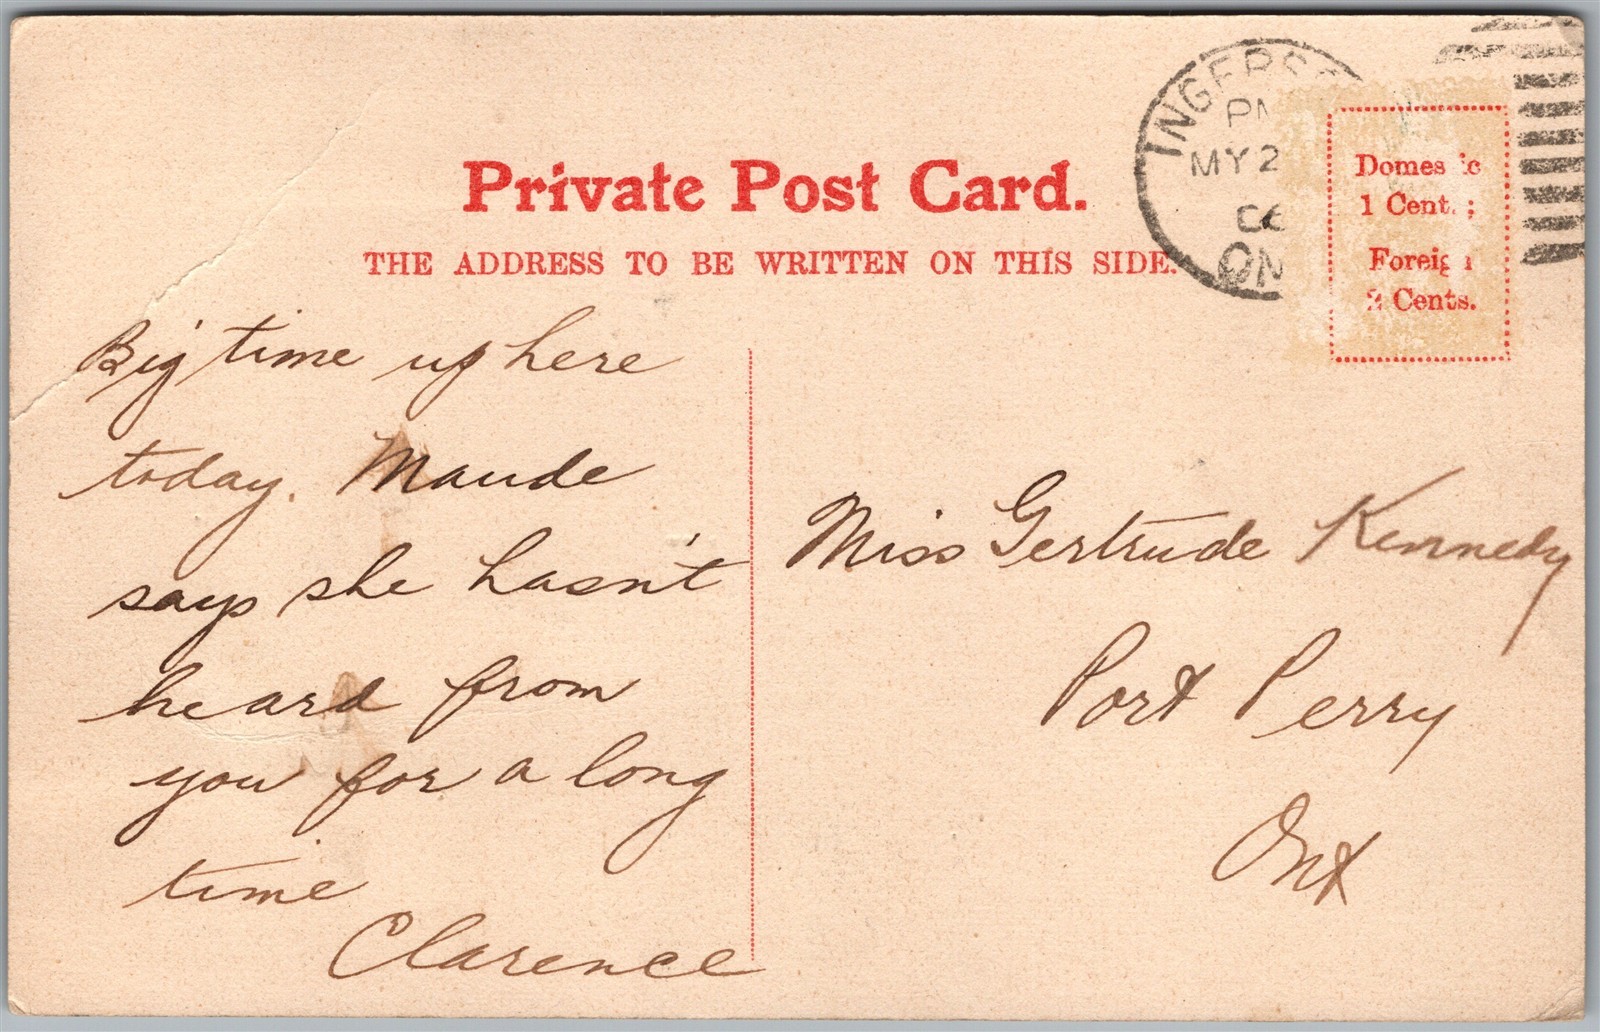 Private Post Card.
THE ADDRESS TO BE WRITTEN ON THIS SIDE.
PM
MY 2
06
Domestic
1 Cent.;
Foreign
2 Cents.
Big time up here
today. Maude
says she hasn't
heard from
you for a long
time
Clarence
Miss Gertrude Kennedy
Port Perry
Ont